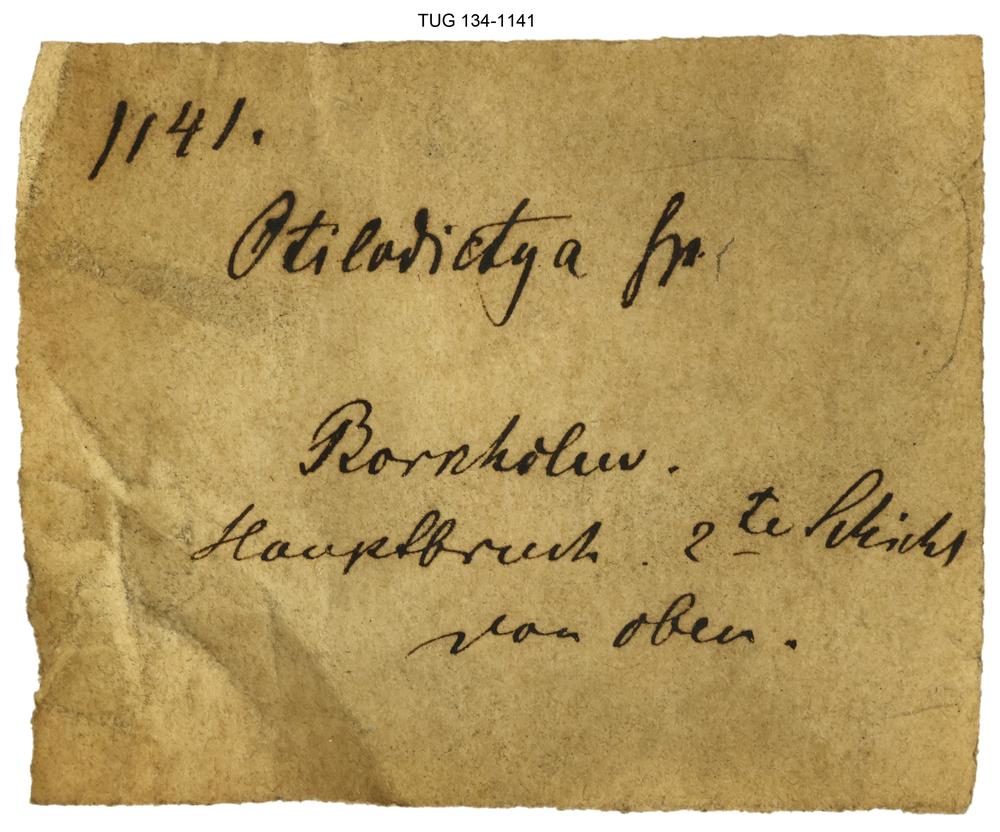 TUG 134-1141
1141.
Ptilodictya sp.
Bornholm.
Hauptbruch. 2te Schicht
von oben.